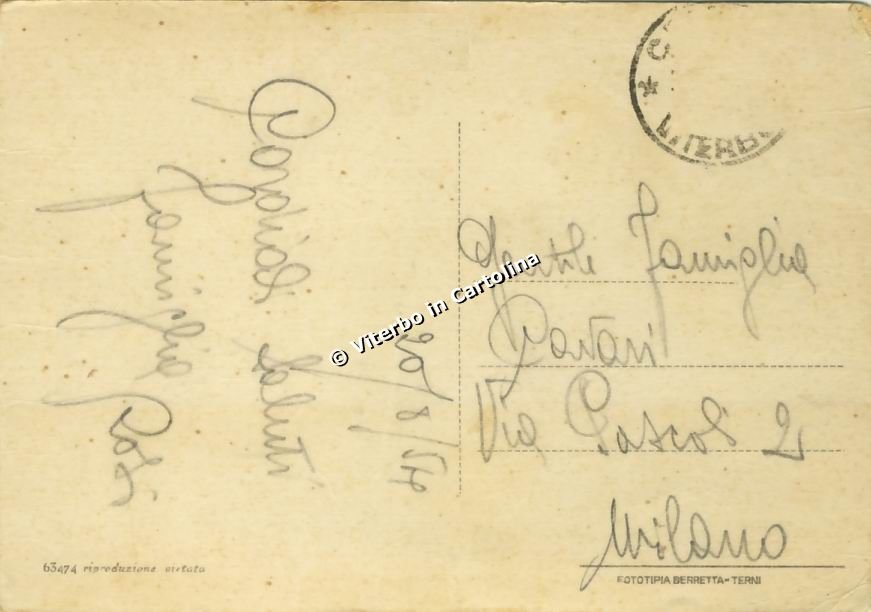 20/8/54
Cordiali saluti
famiglia
Gentile Famiglia
Via Pascoli 2
Milano
* VITERBO
© Viterbo in Cartolina
63474 riproduzione vietata
FOTOTIPIA BERRETTA-TERNI